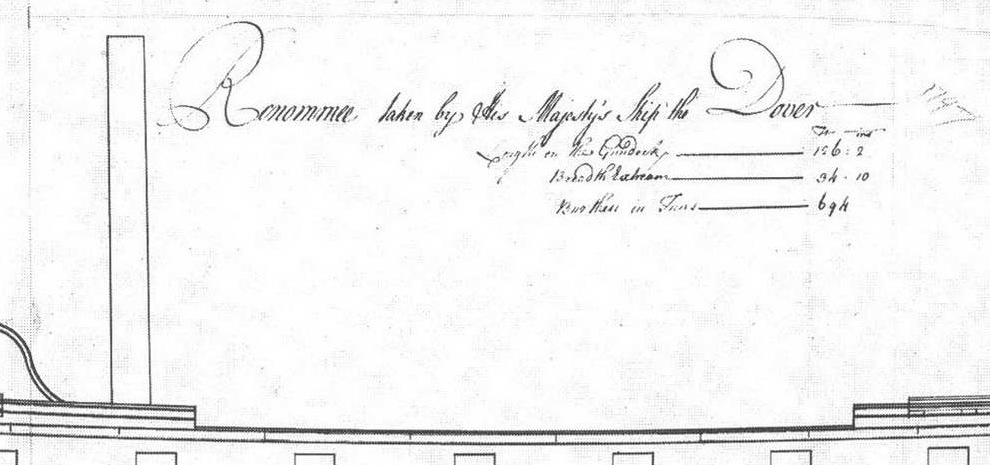 Renommee taken by His Majesty's Ship the Dover 1747
Ft ins
Length on the Gundeck 126 : 2
Breadth Extream 34 - 10
Burthen in Tuns 694